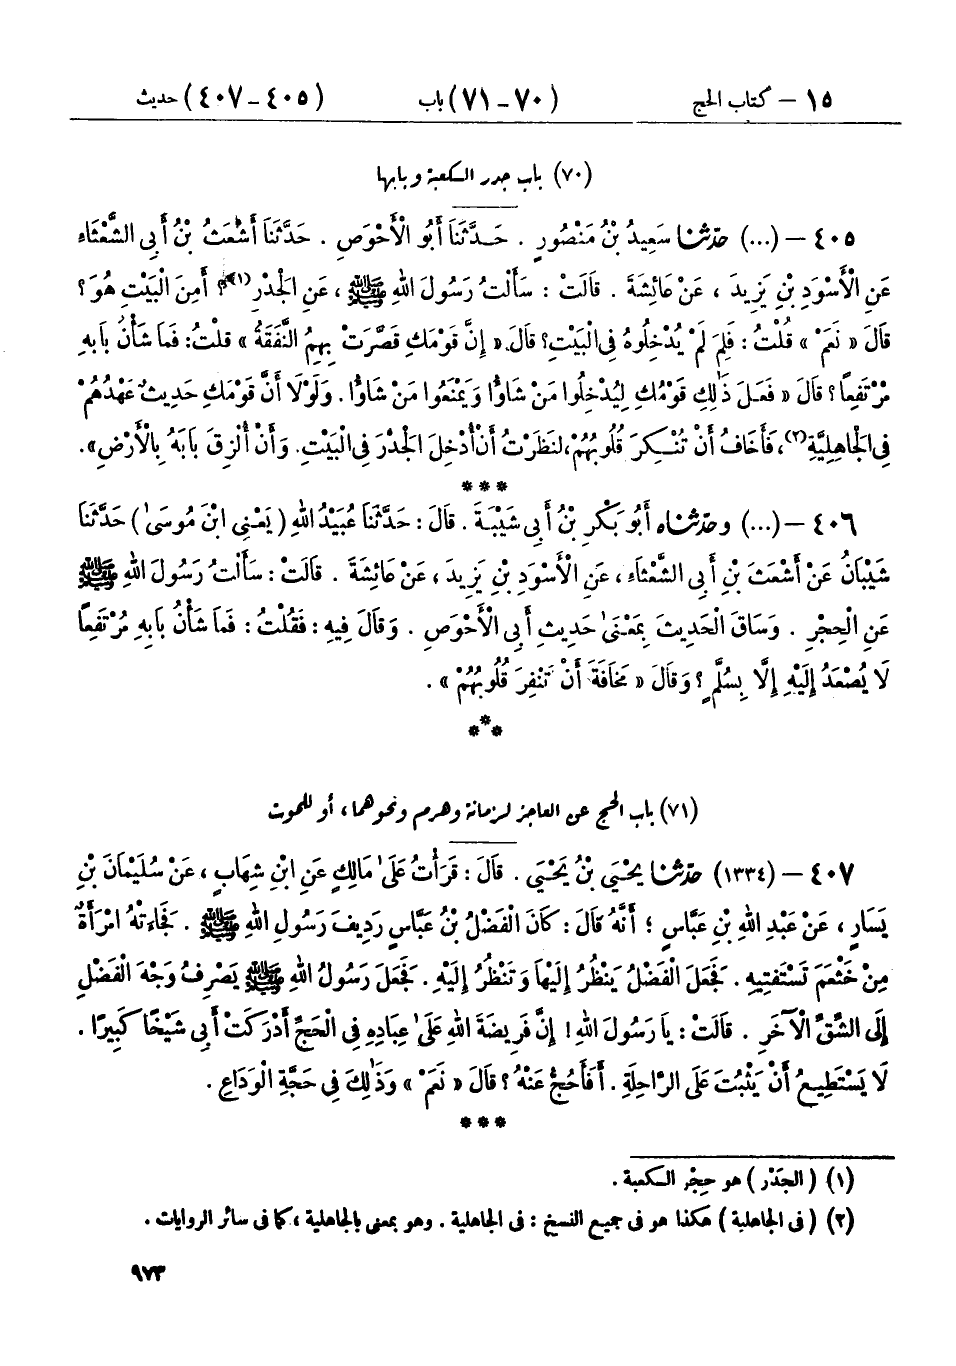 ١٥ – كتاب الحج (٧٠-٧١) باب (٤٠٥-٤٠٧) حديث
(٧٠) باب جدر الكعبة وبابها
٤٠٥ – (...) حدّثنا سَعِيدُ بْنُ مَنْصُورٍ . حَدَّثَنَا أَبُو الْأَحْوَصِ . حَدَّثَنَا أَشْعَثُ بْنُ أَبِي الشَّعْثَاءِ
عَنِ الْأَسْوَدِ بْنِ يَزِيدَ ، عَنْ عَائِشَةَ . قَالَتْ : سَأَلْتُ رَسُولَ اللهِ ﷺ ، عَنِ الْجَدْرِ(١)؟ أَمِنَ الْبَيْتِ هُوَ ؟
قَالَ « نَعَمْ » قُلْتُ : فَلِمَ لَمْ يُدْخِلُوهُ فِي الْبَيْتِ؟ قَالَ. « إِنَّ قَوْمَكِ قَصَّرَتْ بِهِمُ النَّفَقَةُ » قلْتُ: فَمَا شَأْنُ بَابِهِ
مُرْتَفِعًا ؟ قَالَ « فَعَلَ ذَٰلِكِ قَوْمُكِ لِيُدْخِلُوا مَنْ شَاؤُا وَيَمْنَعُوا مَنْ شَاؤُا . وَلَوْلَا أَنَّ قَوْمَكِ حَدِيثٌ عَهْدُهُمْ
فِي الْجَاهِلِيَّةِ(٢)، فَأَخَافُ أَنْ تُنْكِرَ قُلُوبُهُمْ، لَنَظَرْتُ أَنْ أُدْخِلَ الْجَدْرَ فِي الْبَيْتِ. وَأَنْ أُلْزِقَ بَابَهُ بِالْأَرْضِ».
***
٤٠٦ – (...) وحدّثناه أَبُو بَكْرِ بْنُ أَبِي شَيْبَةَ . قَالَ : حَدَّثَنَا عُبَيْدُ اللهِ ( يَعْنِي ابْنَ مُوسَىٰ ) حَدَّثَنَا
شَيْبَانُ عَنْ أَشْعَثَ بْنِ أَبِي الشَّعْثَاءِ ، عَنِ الْأَسْوَدِ بْنِ يَزِيدَ ، عَنْ عَائِشَةَ . قَالَتْ : سَأَلْتُ رَسُولَ اللهِ ﷺ
عَنِ الْحِجْرِ . وَسَاقَ الْحَدِيثَ بِمَعْنَىٰ حَدِيثِ أَبِي الْأَحْوَصِ . وَقَالَ فِيهِ : فَقُلْتُ : فَمَا شَأْنُ بَابِهِ مُرْتَفِعًا
لَا يُصْعَدُ إِلَيْهِ إِلَّا بِسُلَّمٍ ؟ وَقَالَ « مَخَافَةَ أَنْ تَنْفِرَ قُلُوبُهُمْ » .
***
(٧١) باب الحج عن العاجز لزمانة وهرم ونحوهما ، أو للموت
٤٠٧ – (١٣٣٤) حدّثنا يَحْيَى بْنُ يَحْيَى . قَالَ : قَرَأْتُ عَلَىٰ مَالِكٍ عَنِ ابْنِ شِهَابٍ ، عَنْ سُلَيْمَانَ بْنِ
يَسَارٍ ، عَنْ عَبْدِ اللهِ بْنِ عَبَّاسٍ ؛ أَنَّهُ قَالَ : كَانَ الْفَضْلُ بْنُ عَبَّاسٍ رَدِيفَ رَسُولِ اللهِ ﷺ . فَجَاءَتْهُ امْرَأَةٌ
مِنْ خَثْعَمَ تَسْتَفْتِيهِ . فَجَعَلَ الْفَضْلُ يَنْظُرُ إِلَيْهَا وَتَنْظُرُ إِلَيْهِ . فَجَعَلَ رَسُولُ اللهِ ﷺ يَصْرِفُ وَجْهَ الْفَضْلِ
إِلَى الشِّقِّ الْآخَرِ . قَالَتْ : يَا رَسُولَ اللهِ ! إِنَّ فَرِيضَةَ اللهِ عَلَىٰ عِبَادِهِ فِي الْحَجِّ أَدْرَكَتْ أَبِي شَيْخًا كَبِيرًا .
لَا يَسْتَطِيعُ أَنْ يَثْبُتَ عَلَى الرَّاحِلَةِ . أَفَأَحُجُّ عَنْهُ ؟ قَالَ « نَعَمْ » وَذَٰلِكَ فِي حَجَّةِ الْوَدَاعِ .
***
(١) ( الجَدْر ) هو حِجْر الكعبة .
(٢) ( فى الجاهلية ) هكذا هو فى جميع النسخ : فى الجاهلية . وهو بمعنى بالجاهلية ، كما فى سائر الروايات .
٩٧٣